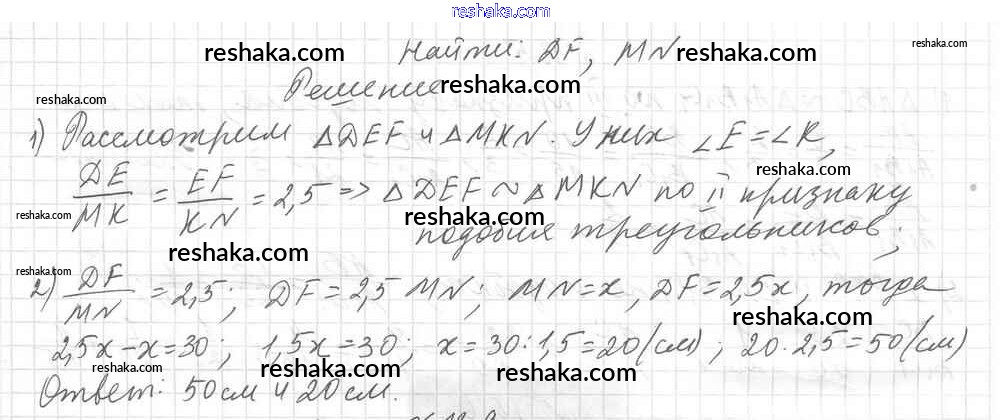 reshaka.com
Найти: DF, MN
Решение
1) Рассмотрим △DEF и △MKN. У них ∠E=∠K,
DE/MK = EF/KN = 2,5 => △DEF ~ △MKN по II признаку
подобия треугольников;
2) DF/MN = 2,5; DF = 2,5 MN; MN=x, DF=2,5x, тогда
2,5x-x=30; 1,5x=30; x=30:1,5=20(см); 20·2,5=50(см)
Ответ: 50см и 20см.
reshaka.com
reshaka.com
reshaka.com
reshaka.com
reshaka.com
reshaka.com
reshaka.com
reshaka.com
reshaka.com
reshaka.com
reshaka.com
reshaka.com
reshaka.com
reshaka.com